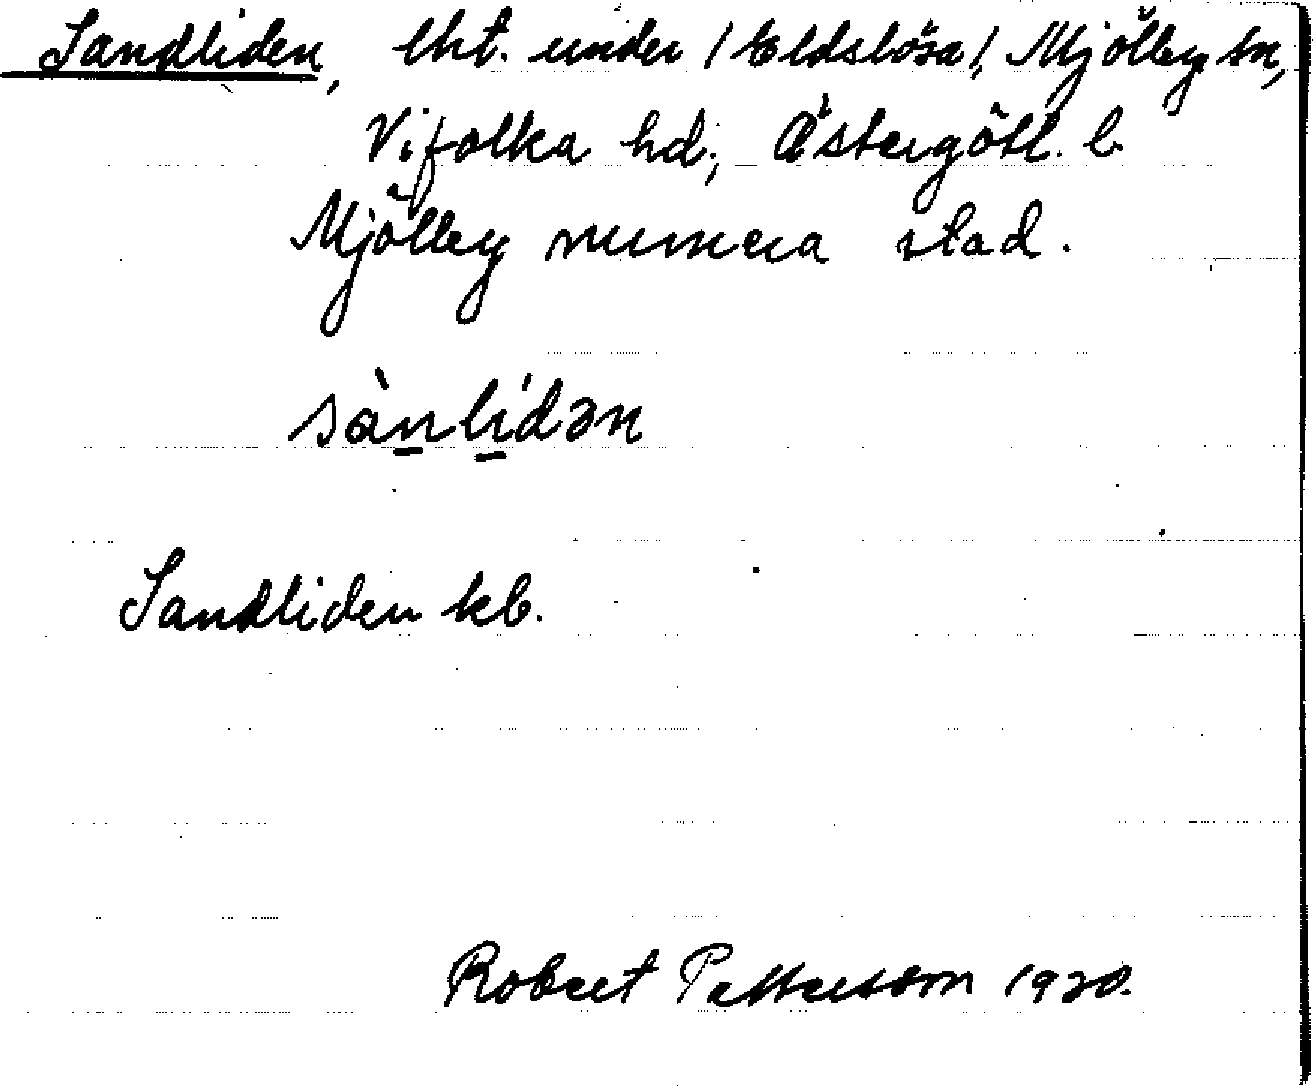 Sandliden, lht. under /Eldslösa/, Mjölby sn,
Vifolka hd; Östergötl. l.
Mjölby numera stad.
sànlídən
Sandliden kb.
Robert Pettersson 1920.